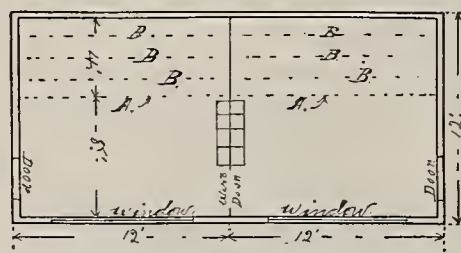 B B
B B
B B
A A
4'
8'
12'
Door
Wire
Door
Door
window window
12' 12'